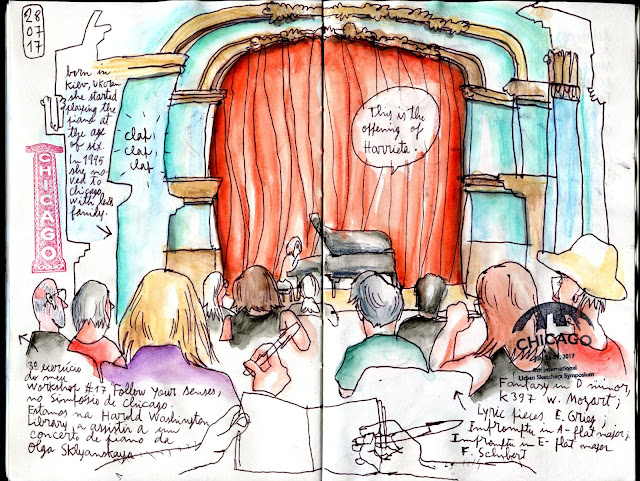 28
07
17
born in
Kiev, Ukrain
she started
playing the
piano at
the age
of six.
In 1995
she mo
ved to
Chicago,
with
family.
clap
clap
clap
This is the
offering of
Harriete.
CHICAGO
3º exercício
do meu
workshop #17 "Follow Your Senses,
no Simpósio de Chicago.
Estamos na Harold Washington
Library, a assistir a um
concerto de piano da
Olga Sklyanskaya
CHICAGO
2017
8th International
Urban Sketchers Symposium
Fantasy in D minor,
K 397 W. Mozart;
Lyric pieces E. Grieg;
Impromptu in A-flat major;
Impromptu in E-flat major
F. Schubert